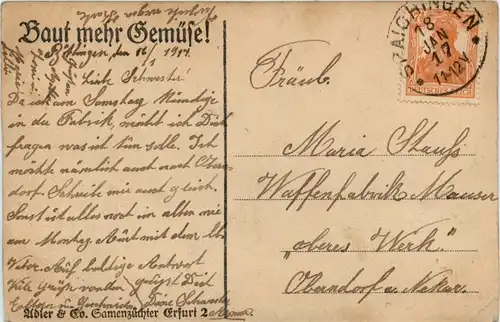 Baut mehr Gemüse!
Böttingen den 16/1 1917.
Liebe Schwester!
Da ich am Samstag Kündige
in der Fabrik, möcht ich Dich
fragen was ich tun solle. Ich
möchte nämlich auch nach Obern
dorf. Schreibe mir aust gleich.
Sonst ist alles noch im alten
am Montag mit dem
Vater. Auf baldige Antwort
Viele Grüße von allen, grüßt Dich
Deine Schwester
Adler & Co. Samenzüchter Erfurt 2
SPAICHINGEN
18
JAN
17
11-12V.
DEUTSCHES REICH
Fräul.
Maria Stauss
Waffenfabrik Mauser
„oberes Werk."
Oberndorf a. Neckar.